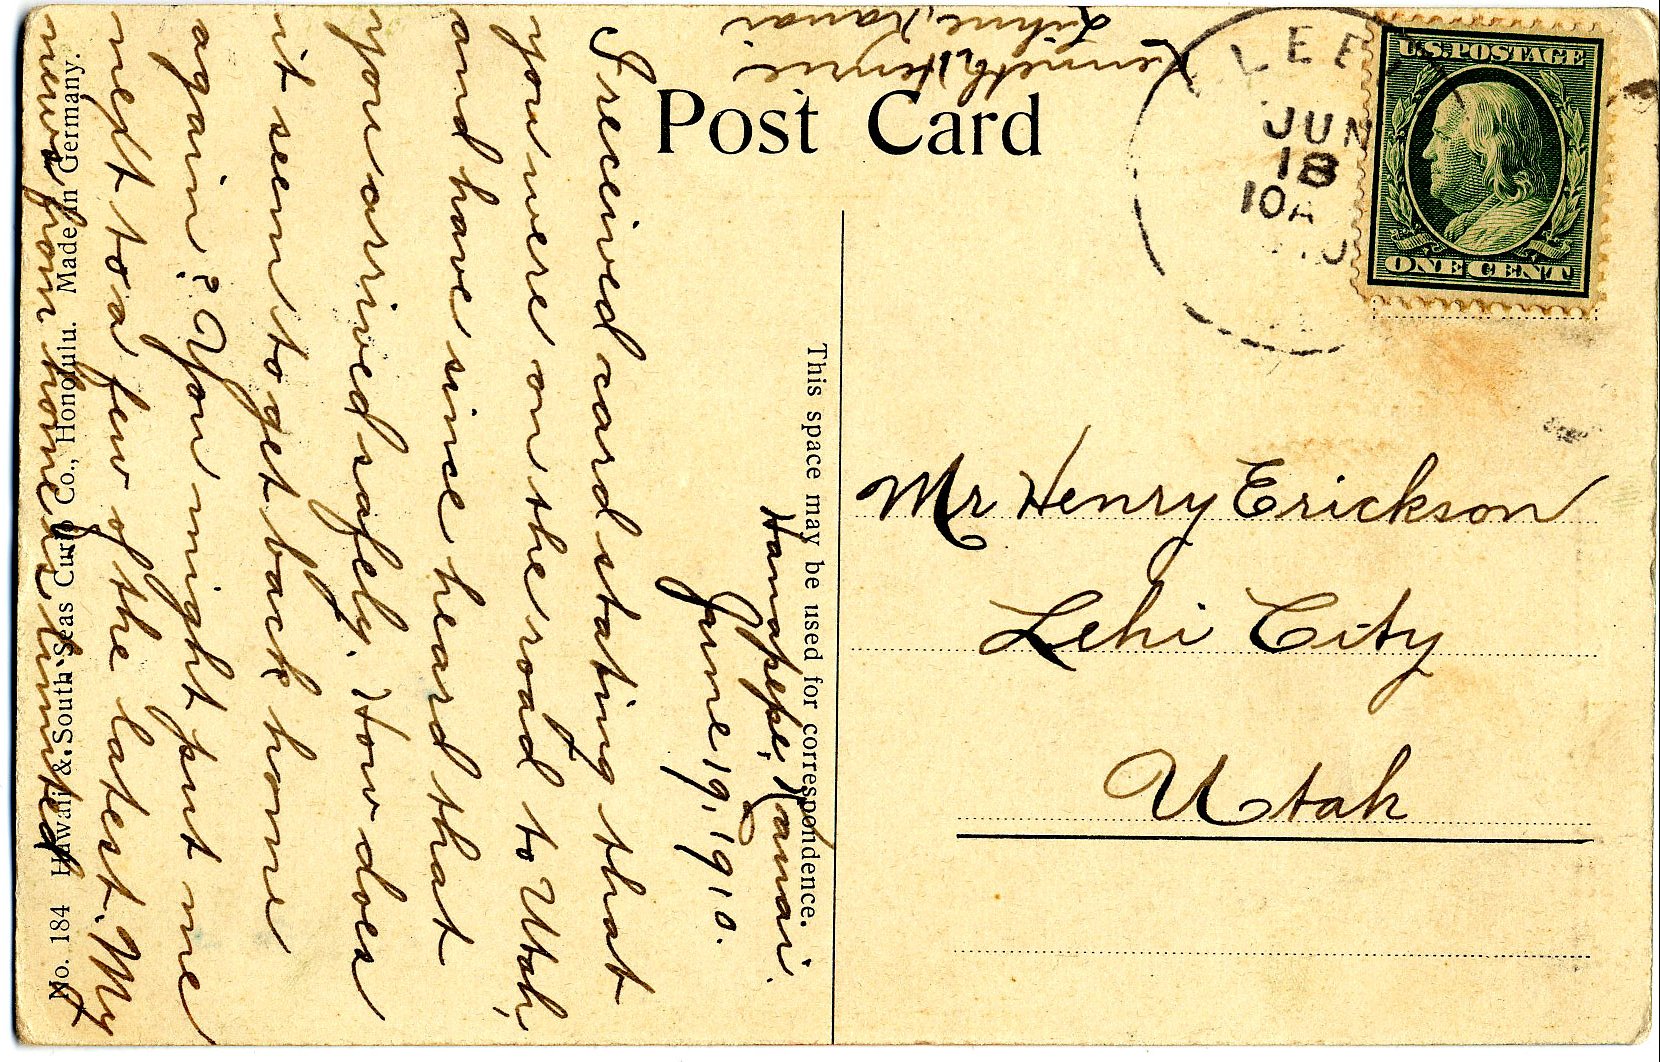 Post Card
This space may be used for correspondence.
Hanapepe, Kauai.
June 19, 1910.
I received card stating that
you were on the road to Utah,
and have since heard that
you arrived safely. How does
it seem to get back home
again? You might put me
next to a few of the latest. My
news from home is limited
Kenneth Henrie.
Lihue, Kauai
No. 184 Hawaii & South Seas Curio Co., Honolulu. Made in Germany.
LEE
JUN
18
10A
U.S. POSTAGE
ONE CENT
Mr Henry Erickson
Lehi City
Utah